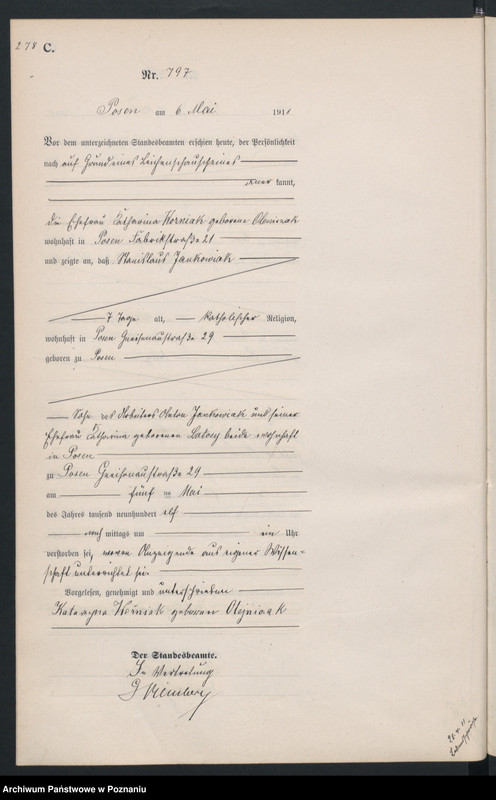 278 C.
Nr. 797
Posen am 6. Mai 1911
Vor dem unterzeichneten Standesbeamten erschien heute, der Persönlichkeit
nach auf Grund eines Leichenschauscheines
kannt,
die Ehefrau Katharina geborene
wohnhaft in Posen Fabrikstraße 21
und zeigte an, daß Stanislaus Jankowiak
7 Tage alt, katholischer Religion,
wohnhaft in Posen Gneisenaustraße 29
geboren zu Posen
Sohn des Arbeiters Anton Jankowiak und seiner
Ehefrau Katharina geborenen beide wohnhaft
in Posen
zu Posen Gneisenaustraße 29
am fünf ten Mai
des Jahres tausend neunhundert elf
nach mittags um ein Uhr
verstorben sei, wovon Anzeigende aus eigener Wissen-
schaft unterrichtet sei.
Vorgelesen, genehmigt und unterschrieben
Katarzyna geboren Olejniczak
Der Standesbeamte.
In Vertretung
Archiwum Państwowe w Poznaniu